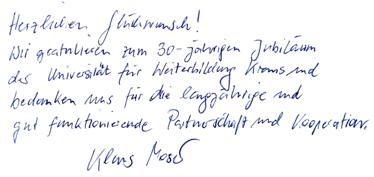 Herzlichen Glückwunsch!
Wir gratulieren zum 30-jährigen Jubiläum
der Universität für Weiterbildung Krems und
bedanken uns für die langjährige und
gut funktionierende Partnerschaft und Kooperation.
Klaus Moser